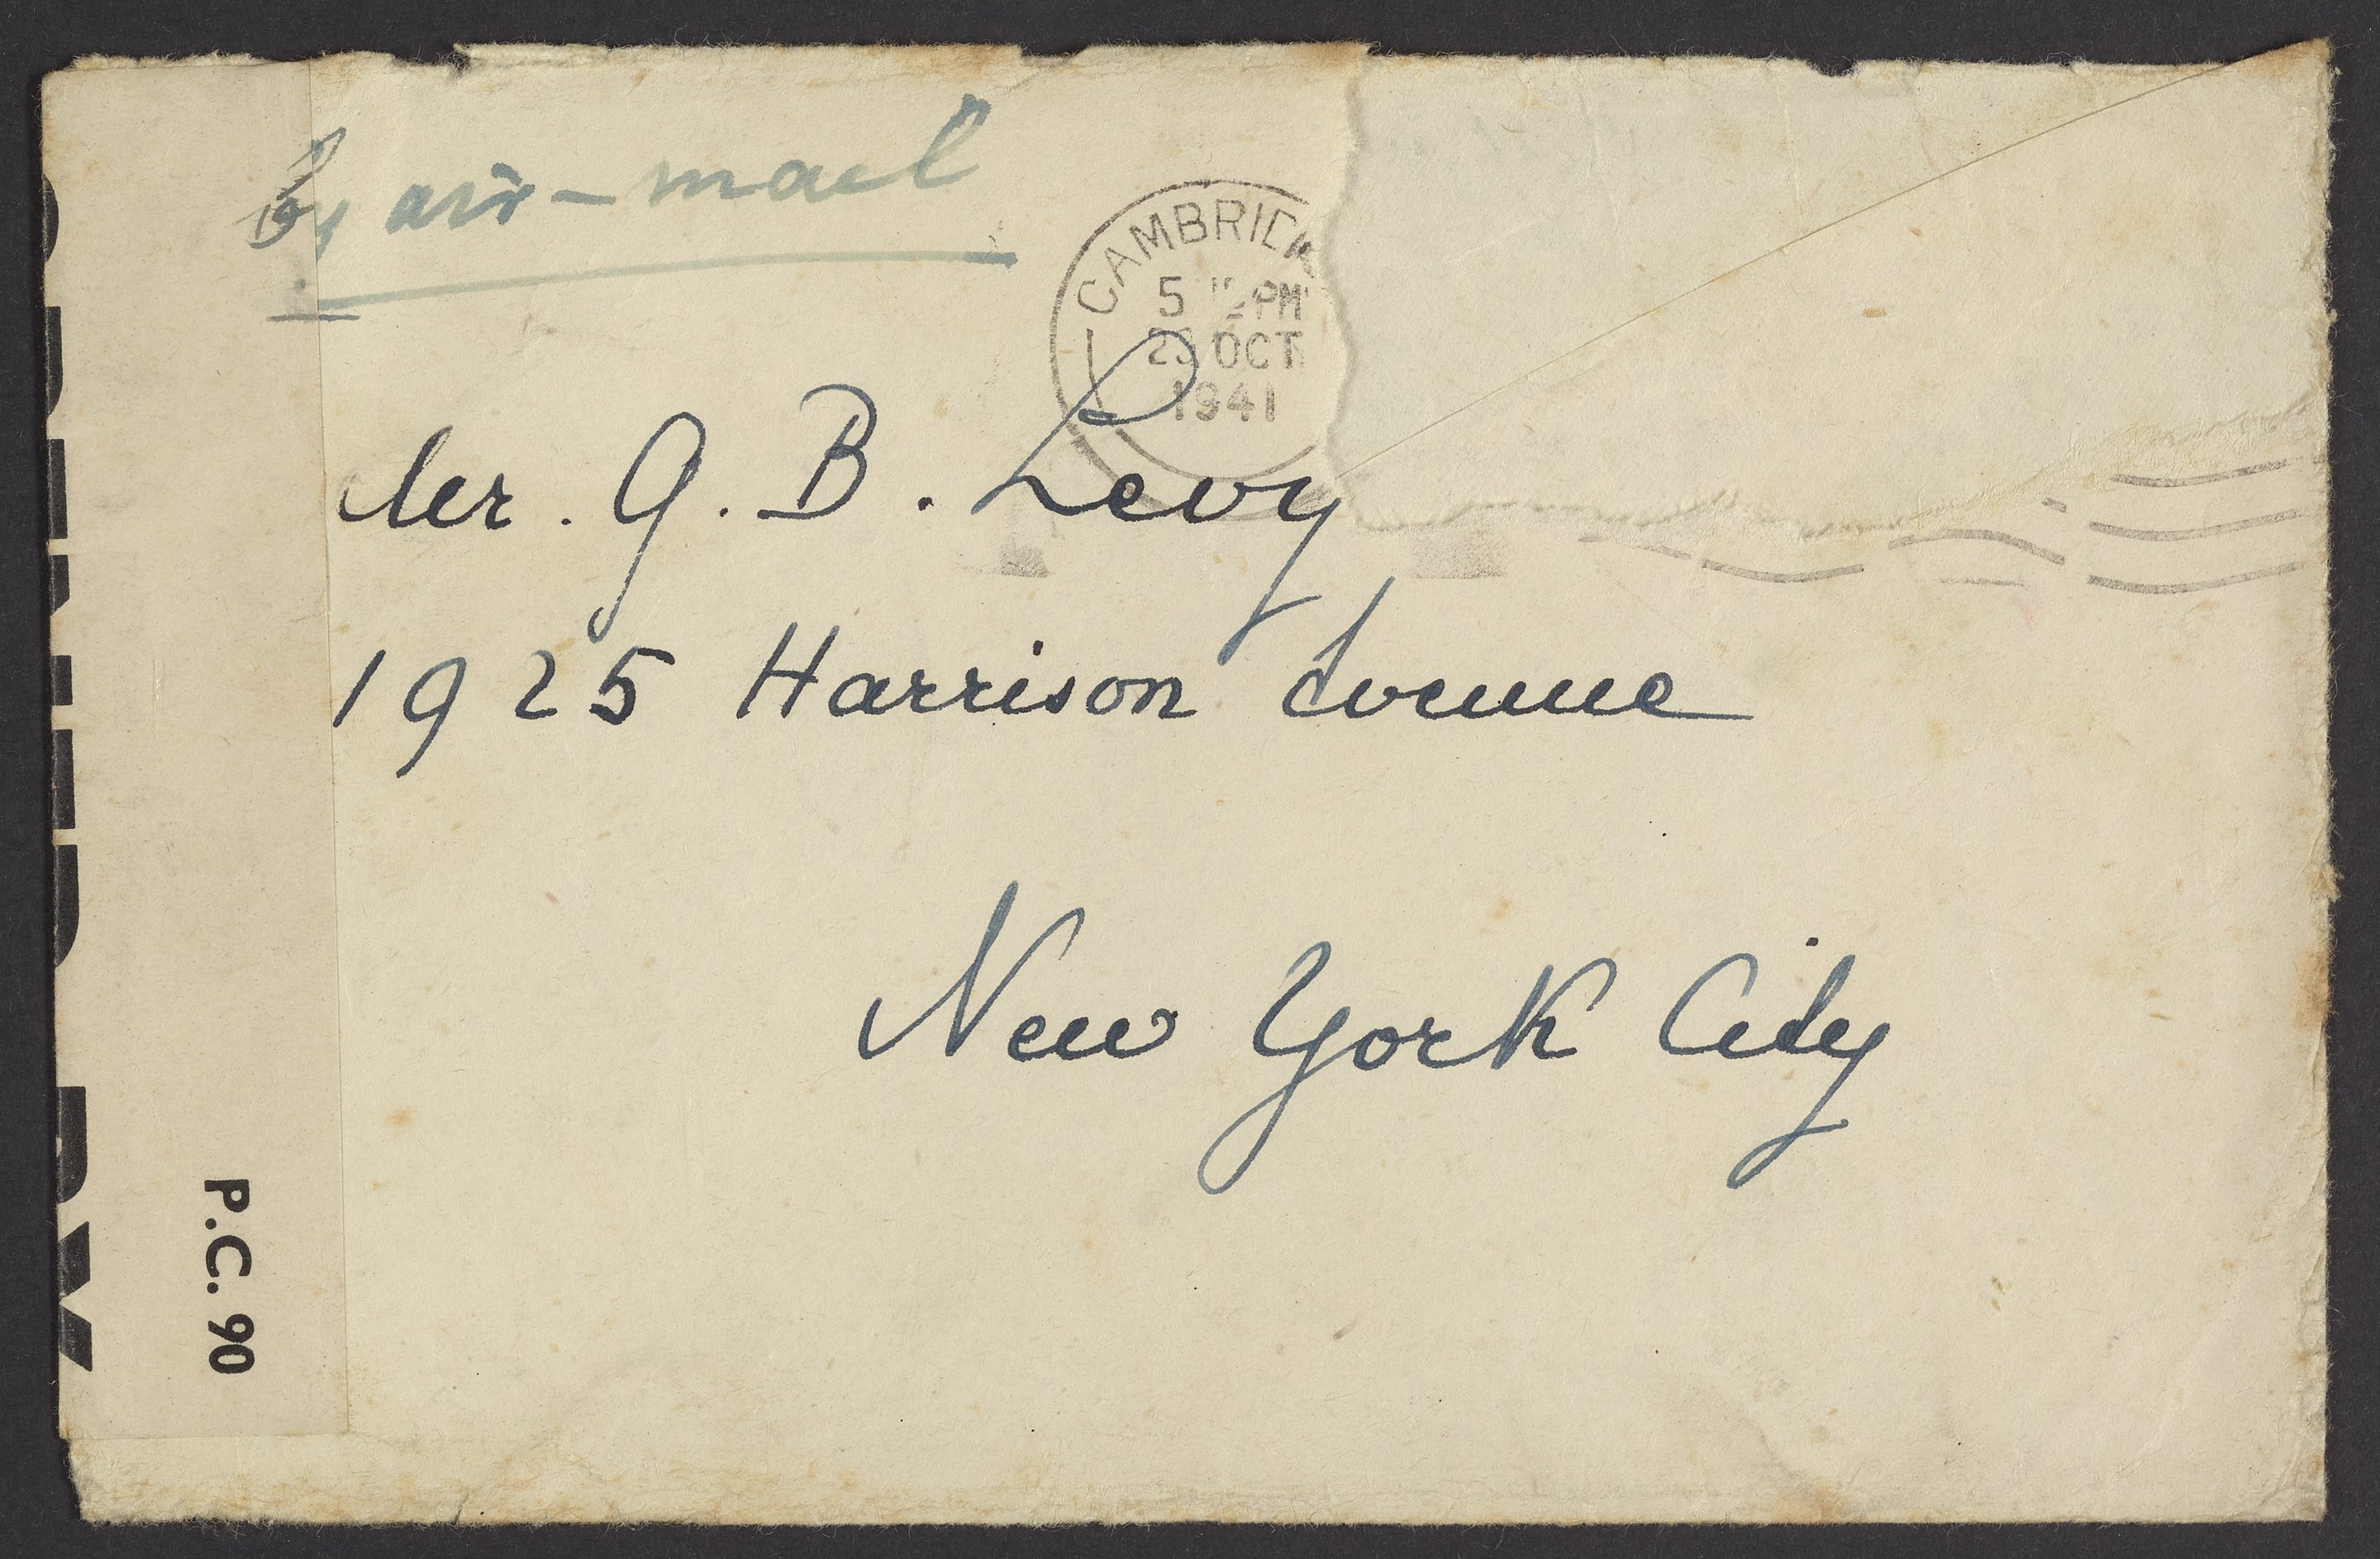 by air-mail
CAMBRIDG
PM
OCT
1941
Mr. G. B. Levy
1925 Harrison Avenue
New York City
P.C. 90